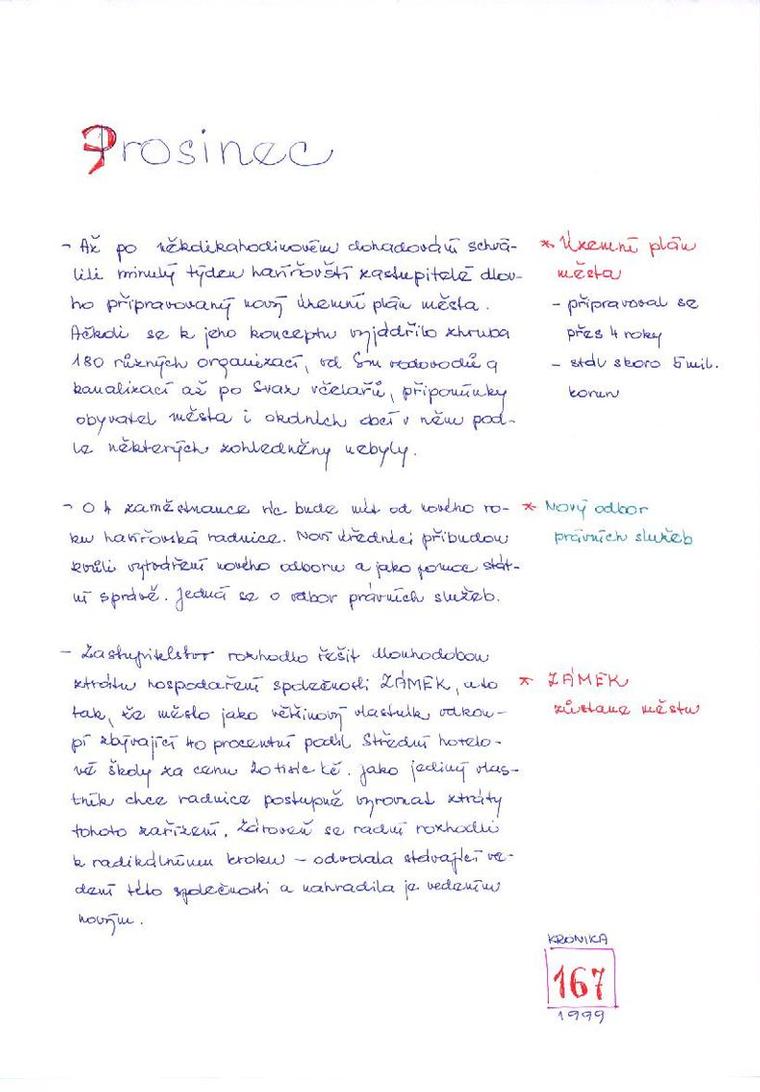 Prosinec
- Až po několikahodinovém dohadování schvá-
lili minulý týden havířovští zastupitelé dlou-
ho připravovaný nový územní plán města.
Ačkoli se k jeho konceptu vyjádřilo zhruba
180 různých organizací, od Sm vodovodů a
kanalizací až po Svaz včelařů, připomínky
obyvatel města i okolních obcí v něm pod-
le některých zohledněny nebyly.
* Územní plán
města
- připravoval se
přes 4 roky
- stál skoro 5 mil.
korun
- O 4 zaměstnance víc bude mít od nového ro-
ku havířovská radnice. Noví úředníci přibudou
kvůli vytváření nového odboru a jako pomoc stát-
ní správě. Jedná se o odbor právních služeb.
* Nový odbor
právních služeb
- Zastupitelstvo rozhodlo řešit dlouhodobou
ztrátu hospodaření společnosti ZÁMEK, a to
tak, že město jako většinový vlastník odkou-
pí zbývající 40 procentní podíl Střední hotelo-
vé školy za cenu 20 tisíc kč. Jako jediný vlas-
tník chce radnice postupně vyrovnat ztráty
tohoto zařízení. Zároveň se radní rozhodli
k radikálnímu kroku - odvolala stávající ve-
dení této společnosti a nahradila je vedením
novým.
* ZÁMEK
zůstane městu
KRONIKA
167
1999